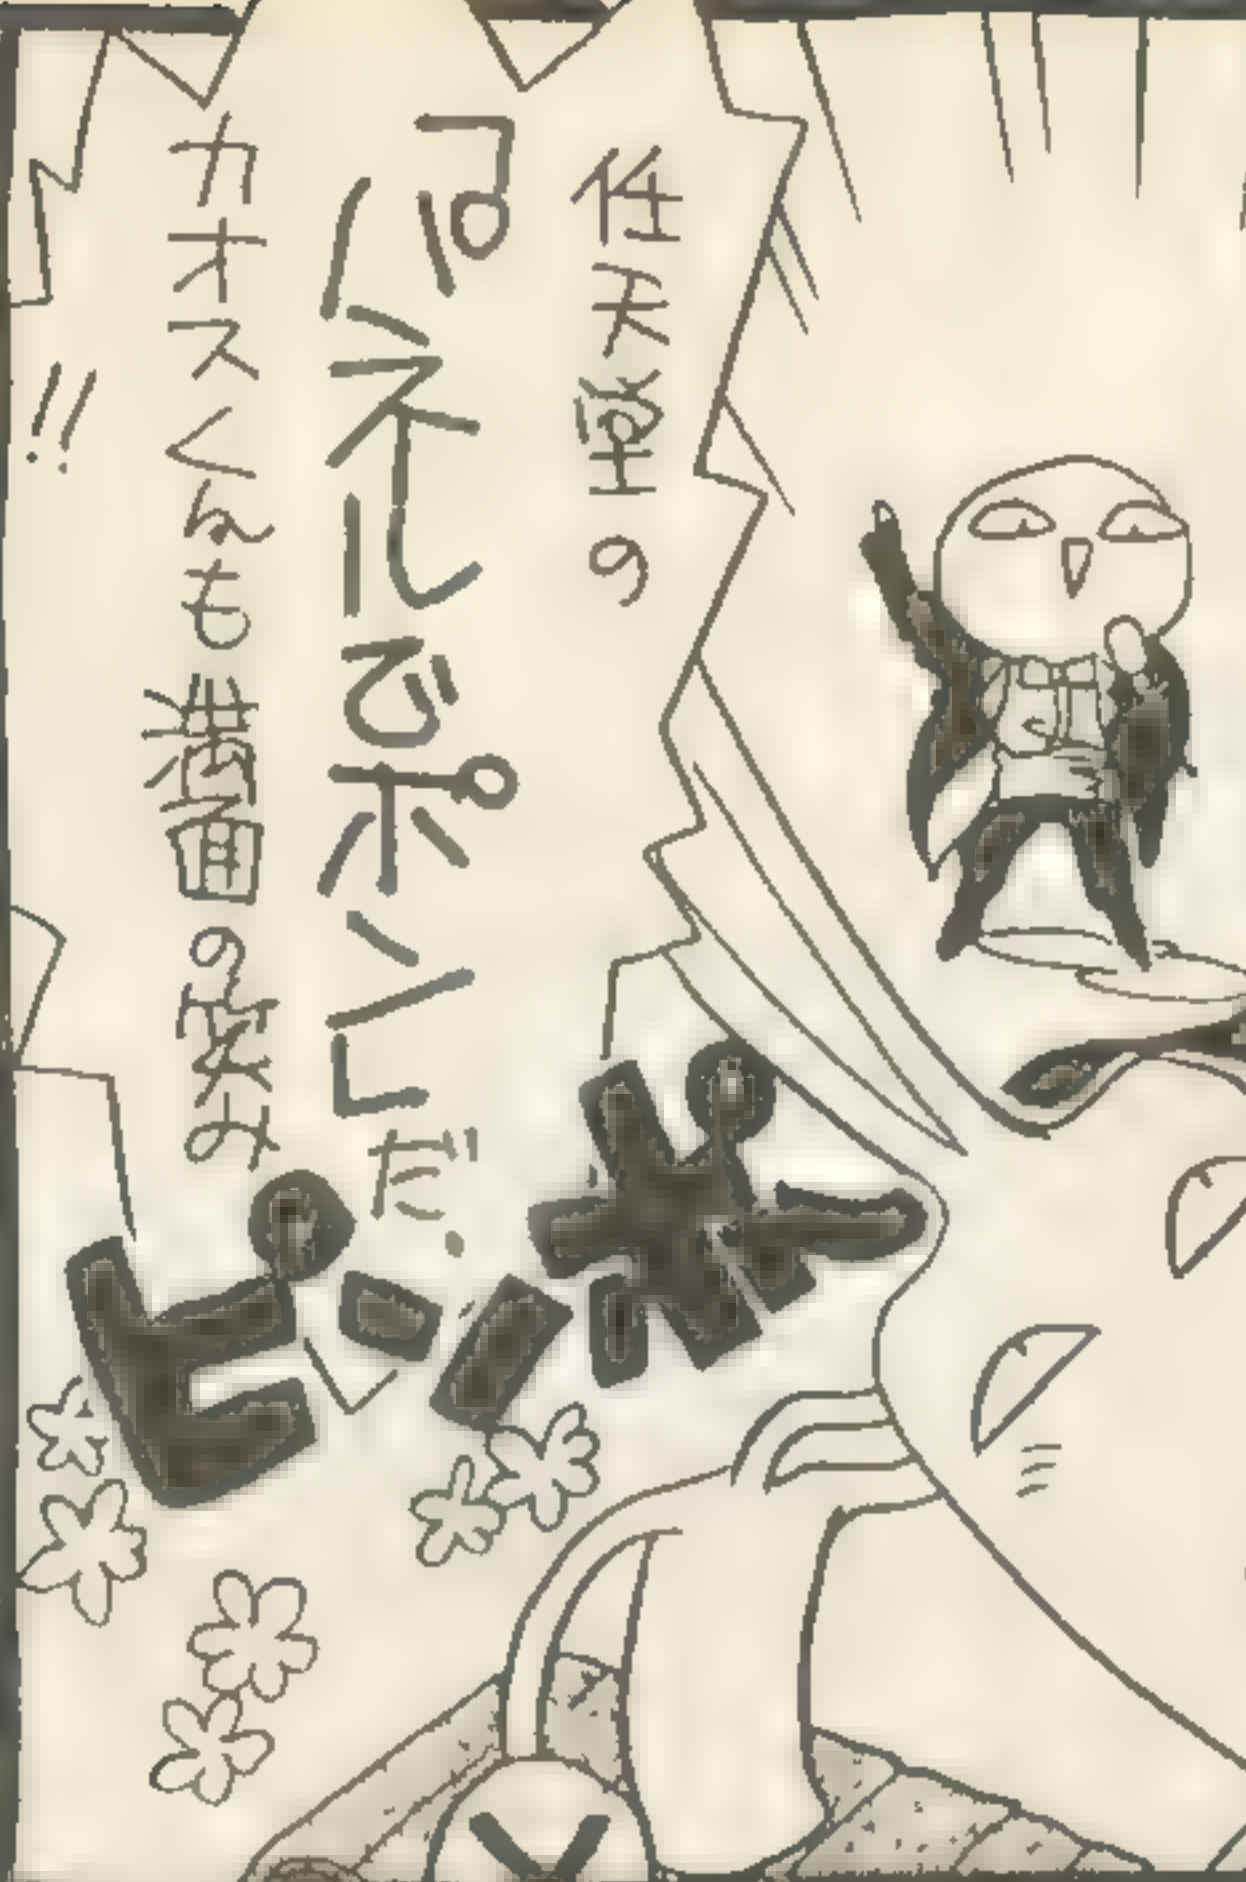 任天堂の
パネルでポン
だ。
カオスくんも満面の笑み
!!
ポン
ピ